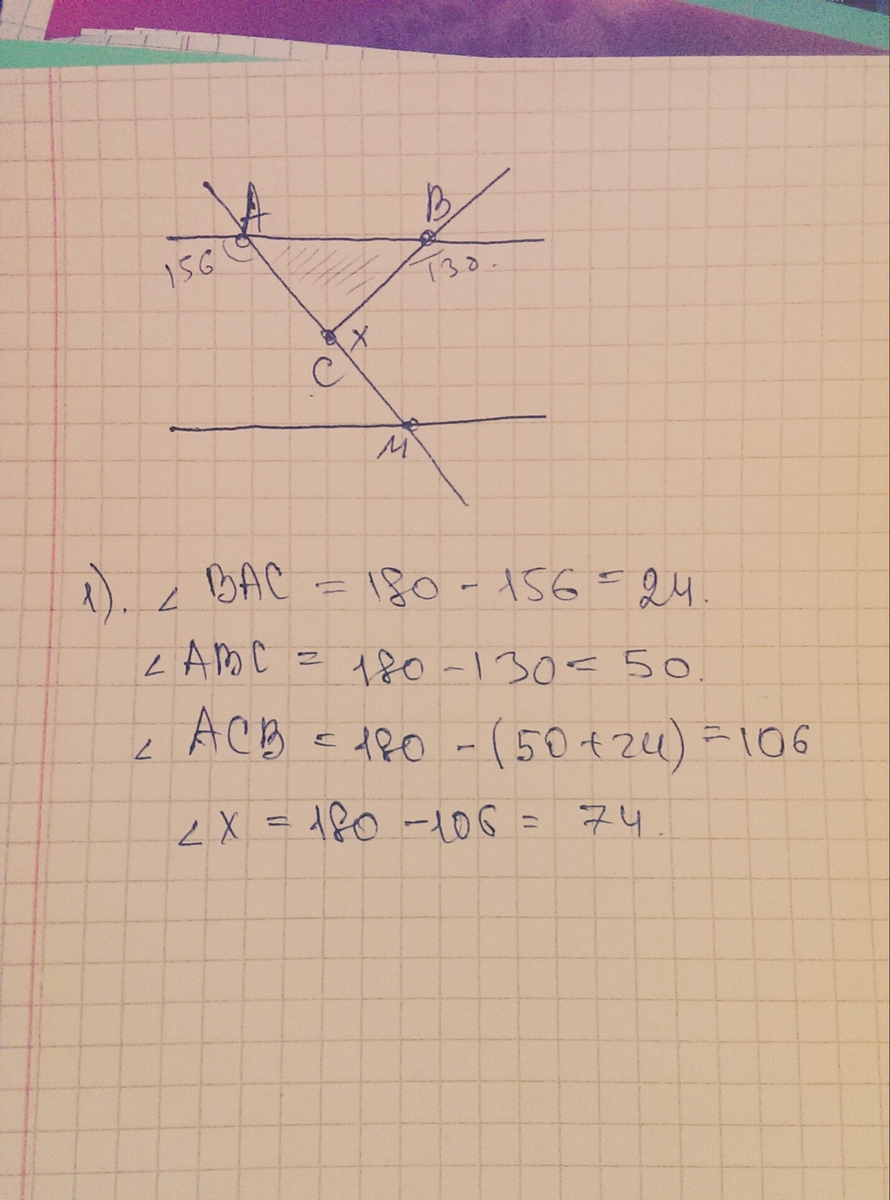 A B
156 130.
x
C
M
1). ∠ BAC = 180 - 156 = 24.
∠ ABC = 180 - 130 = 50.
∠ ACB = 180 - (50 + 24) = 106
∠ x = 180 - 106 = 74.